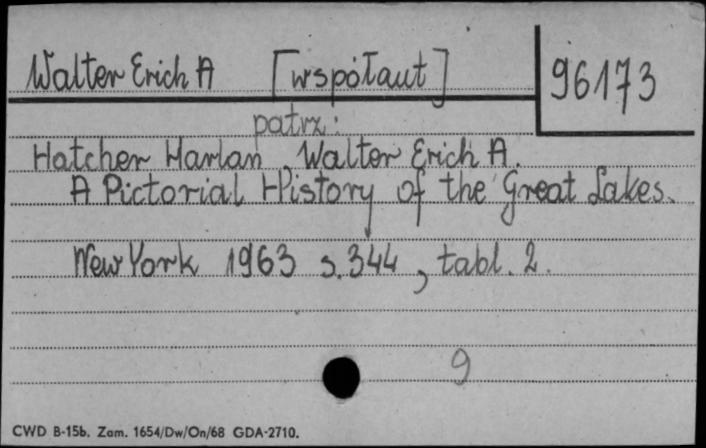 Walter Erich A [współaut] 96173
patrz:
Hatcher Harlan, Walter Erich A.
A Pictorial History of the Great Lakes.
New York 1963 s. 344, tabl. 2.
9
CWD B-15b. Zam. 1654/Dw/On/68 GDA-2710.